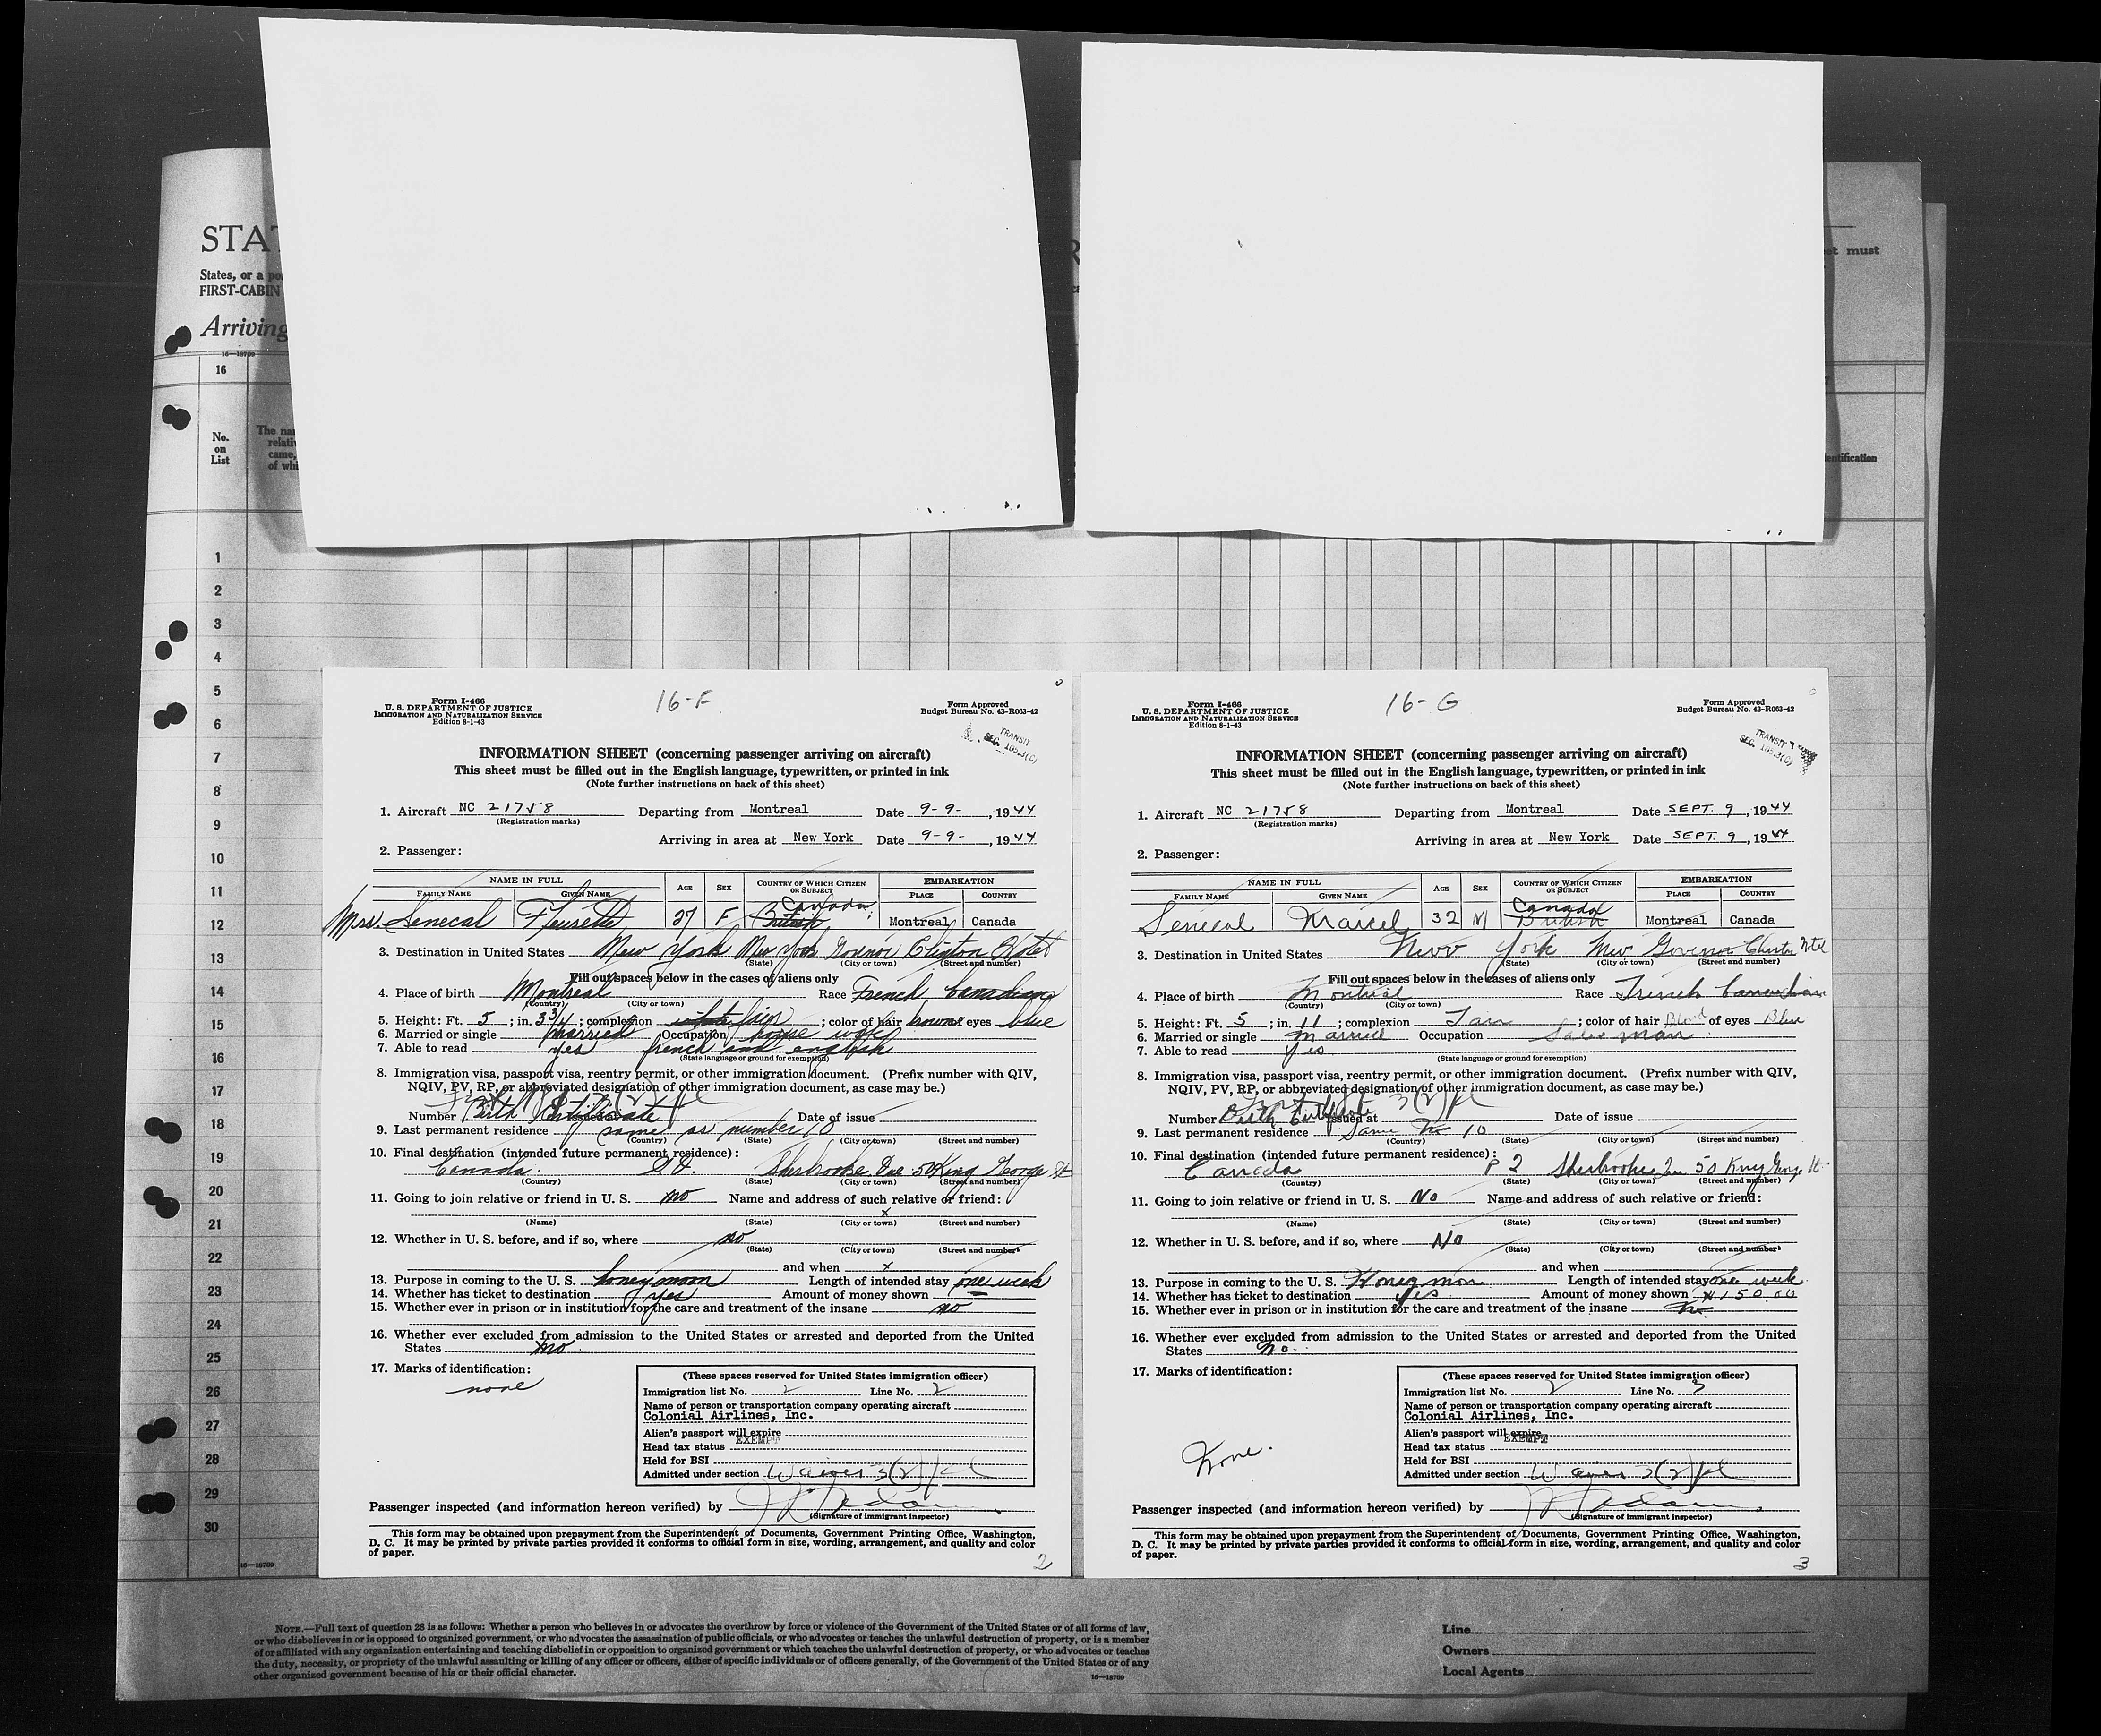 STAT
States, or a po
FIRST-CABIN
Arriving
et must
16—18709
16
No.
on
List
The nam
relativ
came,
of whi
entification
1
2
3
4
5
6
7
8
9
10
11
12
13
14
15
16
17
18
19
20
21
22
23
24
25
26
27
28
29
30
16—18709
16-F
Form I-466
U. S. DEPARTMENT OF JUSTICE
IMMIGRATION AND NATURALIZATION SERVICE
Edition 8-1-43
Form Approved
Budget Bureau No. 43-R063-42
TRANSIT
SEC. 105.3(C)
INFORMATION SHEET (concerning passenger arriving on aircraft)
This sheet must be filled out in the English language, typewritten, or printed in ink
(Note further instructions on back of this sheet)
1. Aircraft NC 21758 Departing from Montreal Date 9-9-, 1944
(Registration marks)
Arriving in area at New York Date 9-9-, 1944
2. Passenger:
NAME IN FULL AGE SEX COUNTRY OF WHICH CITIZEN OR SUBJECT EMBARKATION
FAMILY NAME GIVEN NAME PLACE COUNTRY
Canada
Mrs. Senecal Fleurette 27 F British Montreal Canada
3. Destination in United States New York New York Govenor Clinton Hotel
(State) (City or town) (Street and number)
Fill out spaces below in the cases of aliens only
4. Place of birth Montreal Race French Canadian
(Country) (City or town)
5. Height: Ft. 5; in. 3 3/4; complexion white fair; color of hair brown eyes blue
6. Married or single married Occupation house wife
7. Able to read yes french and english
(State language or ground for exemption)
8. Immigration visa, passport visa, reentry permit, or other immigration document. (Prefix number with QIV,
NQIV, PV, RP, or abbreviated designation of other immigration document, as case may be.)
Number Birth Certificate Date of issue
9. Last permanent residence same as number 10
(Country) (State) (City or town) (Street and number)
10. Final destination (intended future permanent residence):
Canada P.Q. Sherbrooke Que 50 King George St
(Country) (State) (City or town) (Street and number)
11. Going to join relative or friend in U. S. no Name and address of such relative or friend:
x
(Name) (State) (City or town) (Street and number)
12. Whether in U. S. before, and if so, where no
(State) (City or town) (Street and number)
and when x
13. Purpose in coming to the U. S. honeymoon Length of intended stay one week
14. Whether has ticket to destination yes Amount of money shown —
15. Whether ever in prison or in institution for the care and treatment of the insane no
16. Whether ever excluded from admission to the United States or arrested and deported from the United
States no
17. Marks of identification:
none
(These spaces reserved for United States immigration officer)
Immigration list No. 2 Line No. 2
Name of person or transportation company operating aircraft
Colonial Airlines, Inc.
Alien's passport will expire
EXEMPT
Head tax status
Held for BSI
Admitted under section Waiver 3(2)
Passenger inspected (and information hereon verified) by
(Signature of immigrant inspector)
This form may be obtained upon prepayment from the Superintendent of Documents, Government Printing Office, Washington,
D. C. It may be printed by private parties provided it conforms to official form in size, wording, arrangement, and quality and color
of paper.
2
16-G
Form I-466
U. S. DEPARTMENT OF JUSTICE
IMMIGRATION AND NATURALIZATION SERVICE
Edition 8-1-43
Form Approved
Budget Bureau No. 43-R063-42
TRANSIT
SEC. 105.3(C)
INFORMATION SHEET (concerning passenger arriving on aircraft)
This sheet must be filled out in the English language, typewritten, or printed in ink
(Note further instructions on back of this sheet)
1. Aircraft NC 21758 Departing from Montreal Date SEPT. 9, 1944
(Registration marks)
Arriving in area at New York Date SEPT. 9, 1944
2. Passenger:
NAME IN FULL AGE SEX COUNTRY OF WHICH CITIZEN OR SUBJECT EMBARKATION
FAMILY NAME GIVEN NAME PLACE COUNTRY
Canada
Senecal Marcel 32 M British Montreal Canada
3. Destination in United States New York New Govenor Hotel
(State) (City or town) (Street and number)
Fill out spaces below in the cases of aliens only
4. Place of birth Montreal Race French Canadian
(Country) (City or town)
5. Height: Ft. 5; in. 11; complexion Fair; color of hair Blond of eyes Blue
6. Married or single Married Occupation Salesman
7. Able to read yes
(State language or ground for exemption)
8. Immigration visa, passport visa, reentry permit, or other immigration document. (Prefix number with QIV,
NQIV, PV, RP, or abbreviated designation of other immigration document, as case may be.)
Number Birth Certificate Issued at Date of issue
9. Last permanent residence Same No 10
(Country) (State) (City or town) (Street and number)
10. Final destination (intended future permanent residence):
Canada P Q Sherbrooke Que 50 King George St
(Country) (State) (City or town) (Street and number)
11. Going to join relative or friend in U. S. No Name and address of such relative or friend:
(Name) (State) (City or town) (Street and number)
12. Whether in U. S. before, and if so, where No
(State) (City or town) (Street and number)
and when
13. Purpose in coming to the U. S. Honeymon Length of intended stay one week
14. Whether has ticket to destination yes Amount of money shown $150.00
15. Whether ever in prison or in institution for the care and treatment of the insane No
16. Whether ever excluded from admission to the United States or arrested and deported from the United
States No.
17. Marks of identification:
None.
(These spaces reserved for United States immigration officer)
Immigration list No. 2 Line No. 3
Name of person or transportation company operating aircraft
Colonial Airlines, Inc.
Alien's passport will expire
EXEMPT
Head tax status
Held for BSI
Admitted under section Waiver 3(2)
Passenger inspected (and information hereon verified) by
(Signature of immigrant inspector)
This form may be obtained upon prepayment from the Superintendent of Documents, Government Printing Office, Washington,
D. C. It may be printed by private parties provided it conforms to official form in size, wording, arrangement, and quality and color
of paper.
3
NOTE.—Full text of question 28 is as follows: Whether a person who believes in or advocates the overthrow by force or violence of the Government of the United States or of all forms of law,
or who disbelieves in or is opposed to organized government, or who advocates the assassination of public officials, or who advocates or teaches the unlawful destruction of property, or is a member
of or affiliated with any organization entertaining and teaching disbelief in or opposition to organized government or which teaches the unlawful destruction of property, or who advocates or teaches
the duty, necessity, or propriety of the unlawful assaulting or killing of any officer or officers, either of specific individuals or of officers generally, of the Government of the United States or of any
other organized government because of his or their official character.
16—18709
Line
Owners
Local Agents